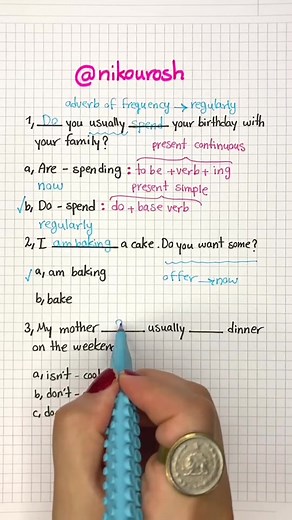 @nikourosh
adverb of frequency → regularly
1, Do you usually spend your birthday with
your family?
present continuous
a, Are - spending : to be + verb + ing
now
present simple
✓b, Do - spend : do + base verb
regularly
2, I am baking a cake. Do you want some?
✓a, am baking
offer → now
b, bake
3, My mother ______ usually ______ dinner
on the weeken
a, isn't - coo
b, don't -
c, do